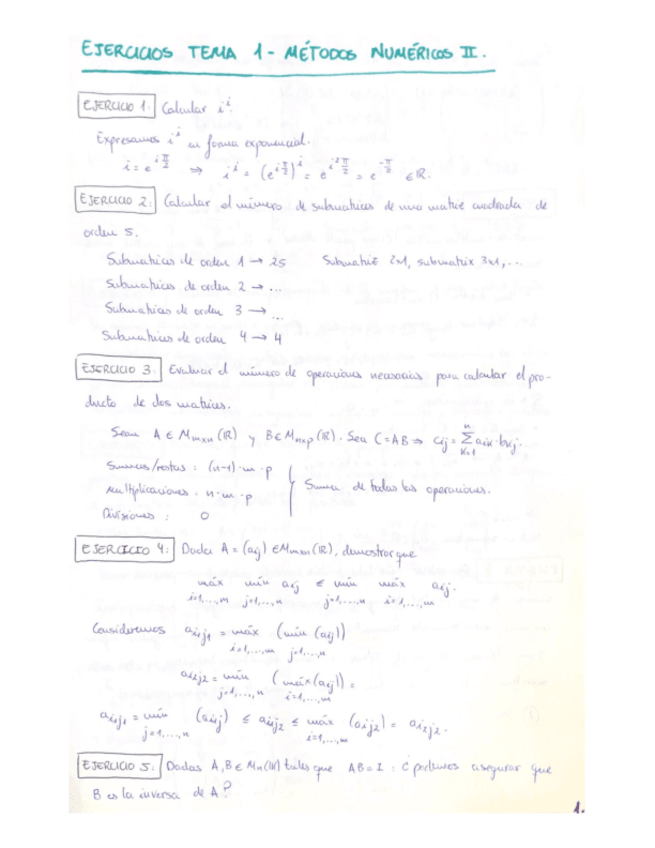 EJERCICIOS TEMA 1 - MÉTODOS NUMÉRICOS II.
EJERCICIO 1: Calcular i^i.
Expresamos i^i en forma exponencial.
i = e^{i π/2} ⇒ i^i = (e^{i π/2})^i = e^{i² π/2} = e^{-π/2} ∈ ℝ.
EJERCICIO 2: Calcular el número de submatrices de una matriz cuadrada de
orden 5.
Submatrices de orden 1 → 25 Submatriz 2x1, submatriz 3x1, ...
Submatrices de orden 2 → ...
Submatrices de orden 3 → ...
Submatrices de orden 4 → 4
EJERCICIO 3: Evaluar el número de operaciones necesarias para calcular el pro-
ducto de dos matrices.
Sean A ∈ M_{mxn}(ℝ) y B ∈ M_{nxp}(ℝ). Sea C = AB ⇒ c_{ij} = Σ_{k=1}^{n} a_{ik} · b_{kj}.
Sumas/restas : (n-1)·m·p
Multiplicaciones : n·m·p } Suma de todas las operaciones.
Divisiones : 0
EJERCICIO 4: Dada A = (a_{ij}) ∈ M_{mxn}(ℝ), demostrar que
máx_{i=1,...,m} mín_{j=1,...,n} a_{ij} ≤ mín_{j=1,...,n} máx_{i=1,...,m} a_{ij}.
Consideremos a_{i1j1} = máx_{i=1,...,m} (mín_{j=1,...,n} (a_{ij}))
a_{i2j2} = mín_{j=1,...,n} (máx_{i=1,...,m} (a_{ij})) =
a_{i1j1} = mín_{j=1,...,n} (a_{i1j}) ≤ a_{i1j2} ≤ máx_{i=1,...,m} (a_{ij2}) = a_{i2j2}.
EJERCICIO 5: Dadas A, B ∈ M_n(ℝ) tales que AB = I : ¿podemos asegurar que
B es la inversa de A?
1.